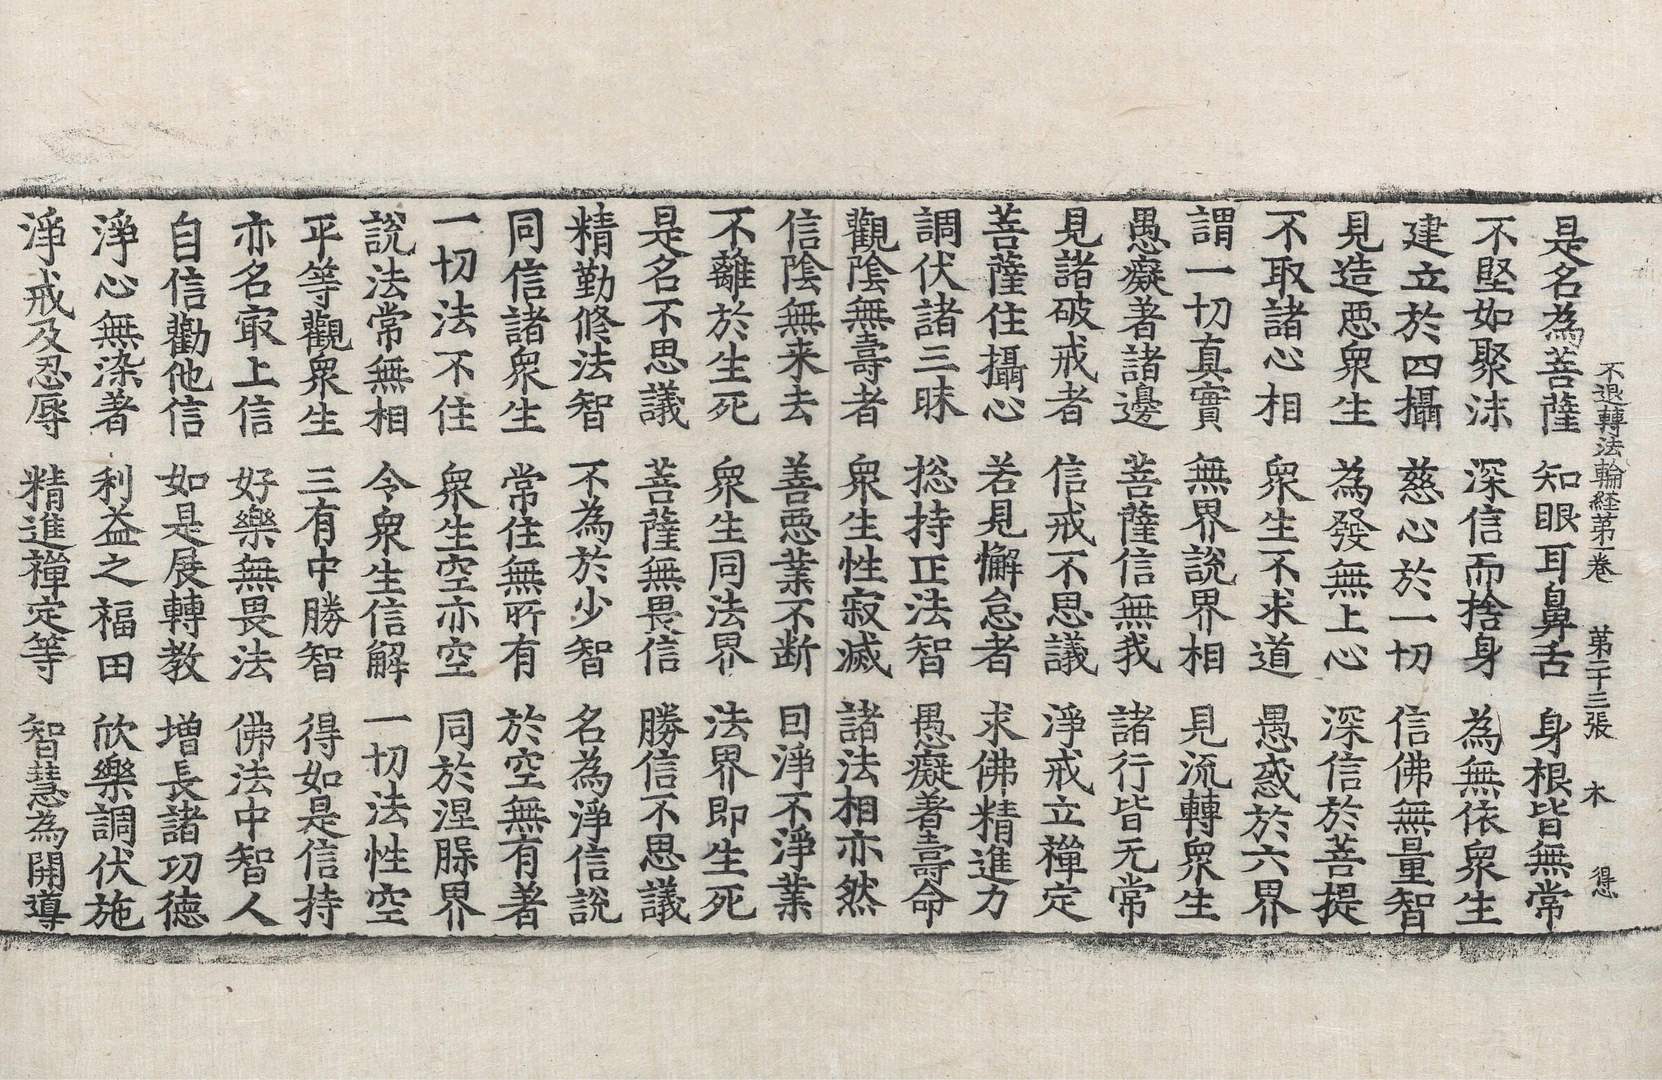 不退轉法輪経第一卷　第二十三張　木　得忠
是名為菩薩　知眼耳鼻舌　身根皆無常
不堅如聚沫　深信而捨身　為無依衆生
建立於四攝　慈心於一切　信佛無量智
見造惡衆生　為發無上心　深信於菩提
不取諸心相　衆生不求道　愚惑於六界
謂一切真實　無界說界相　見流轉衆生
愚癡著諸邊　菩薩信無我　諸行皆无常
見諸破戒者　信戒不思議　淨戒立禪定
菩薩住攝心　若見懈怠者　求佛精進力
調伏諸三昧　捴持正法智　愚癡著壽命
觀陰無壽者　衆生性寂滅　諸法相亦然
信陰無来去　善惡業不斷　回淨不淨業
不離於生死　衆生同法界　法界即生死
是名不思議　菩薩無畏信　勝信不思議
精勤修法智　不為於少智　名為淨信說
同信諸衆生　常住無所有　於空無有著
一切法不住　衆生空亦空　同於涅槃界
說法常無相　令衆生信解　一切法性空
平等觀衆生　三有中勝智　得如是信持
亦名㝡上信　好樂無畏法　佛法中智人
自信勸他信　如是展轉教　增長諸功德
淨心無染著　利益之福田　欣樂調伏施
淨戒及忍辱　精進禪定等　智慧為開導